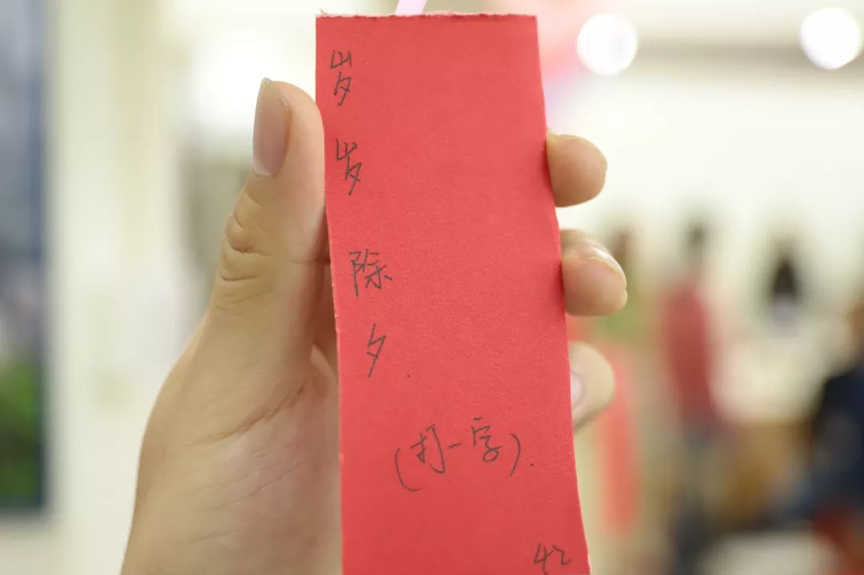 岁岁除夕.
(打一字).
42